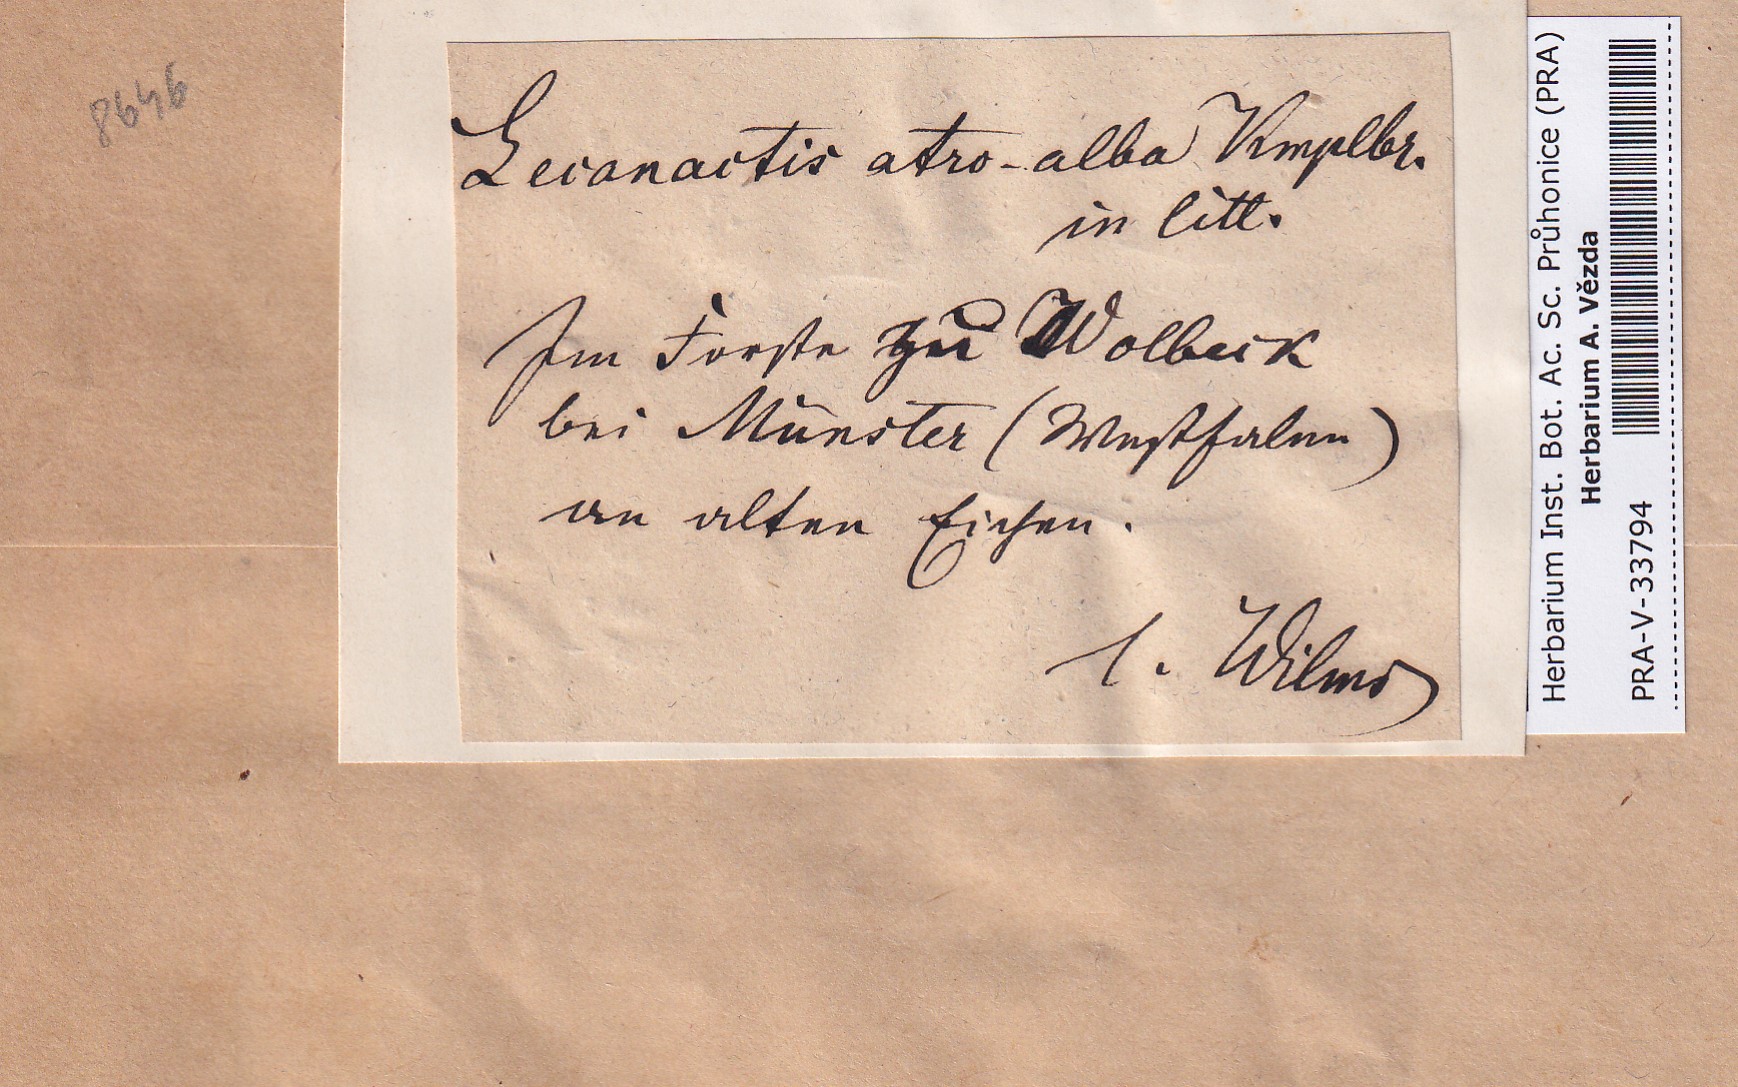 8646
Lecanactis atro-alba Kmplbr.
in litt.
Im Forste zu Wolbeck
bei Münster (Westfalen)
an alten Eichen.
Wilms
Herbarium Inst. Bot. Ac. Sc. Průhonice (PRA)
Herbarium A. Vězda
PRA-V-33794